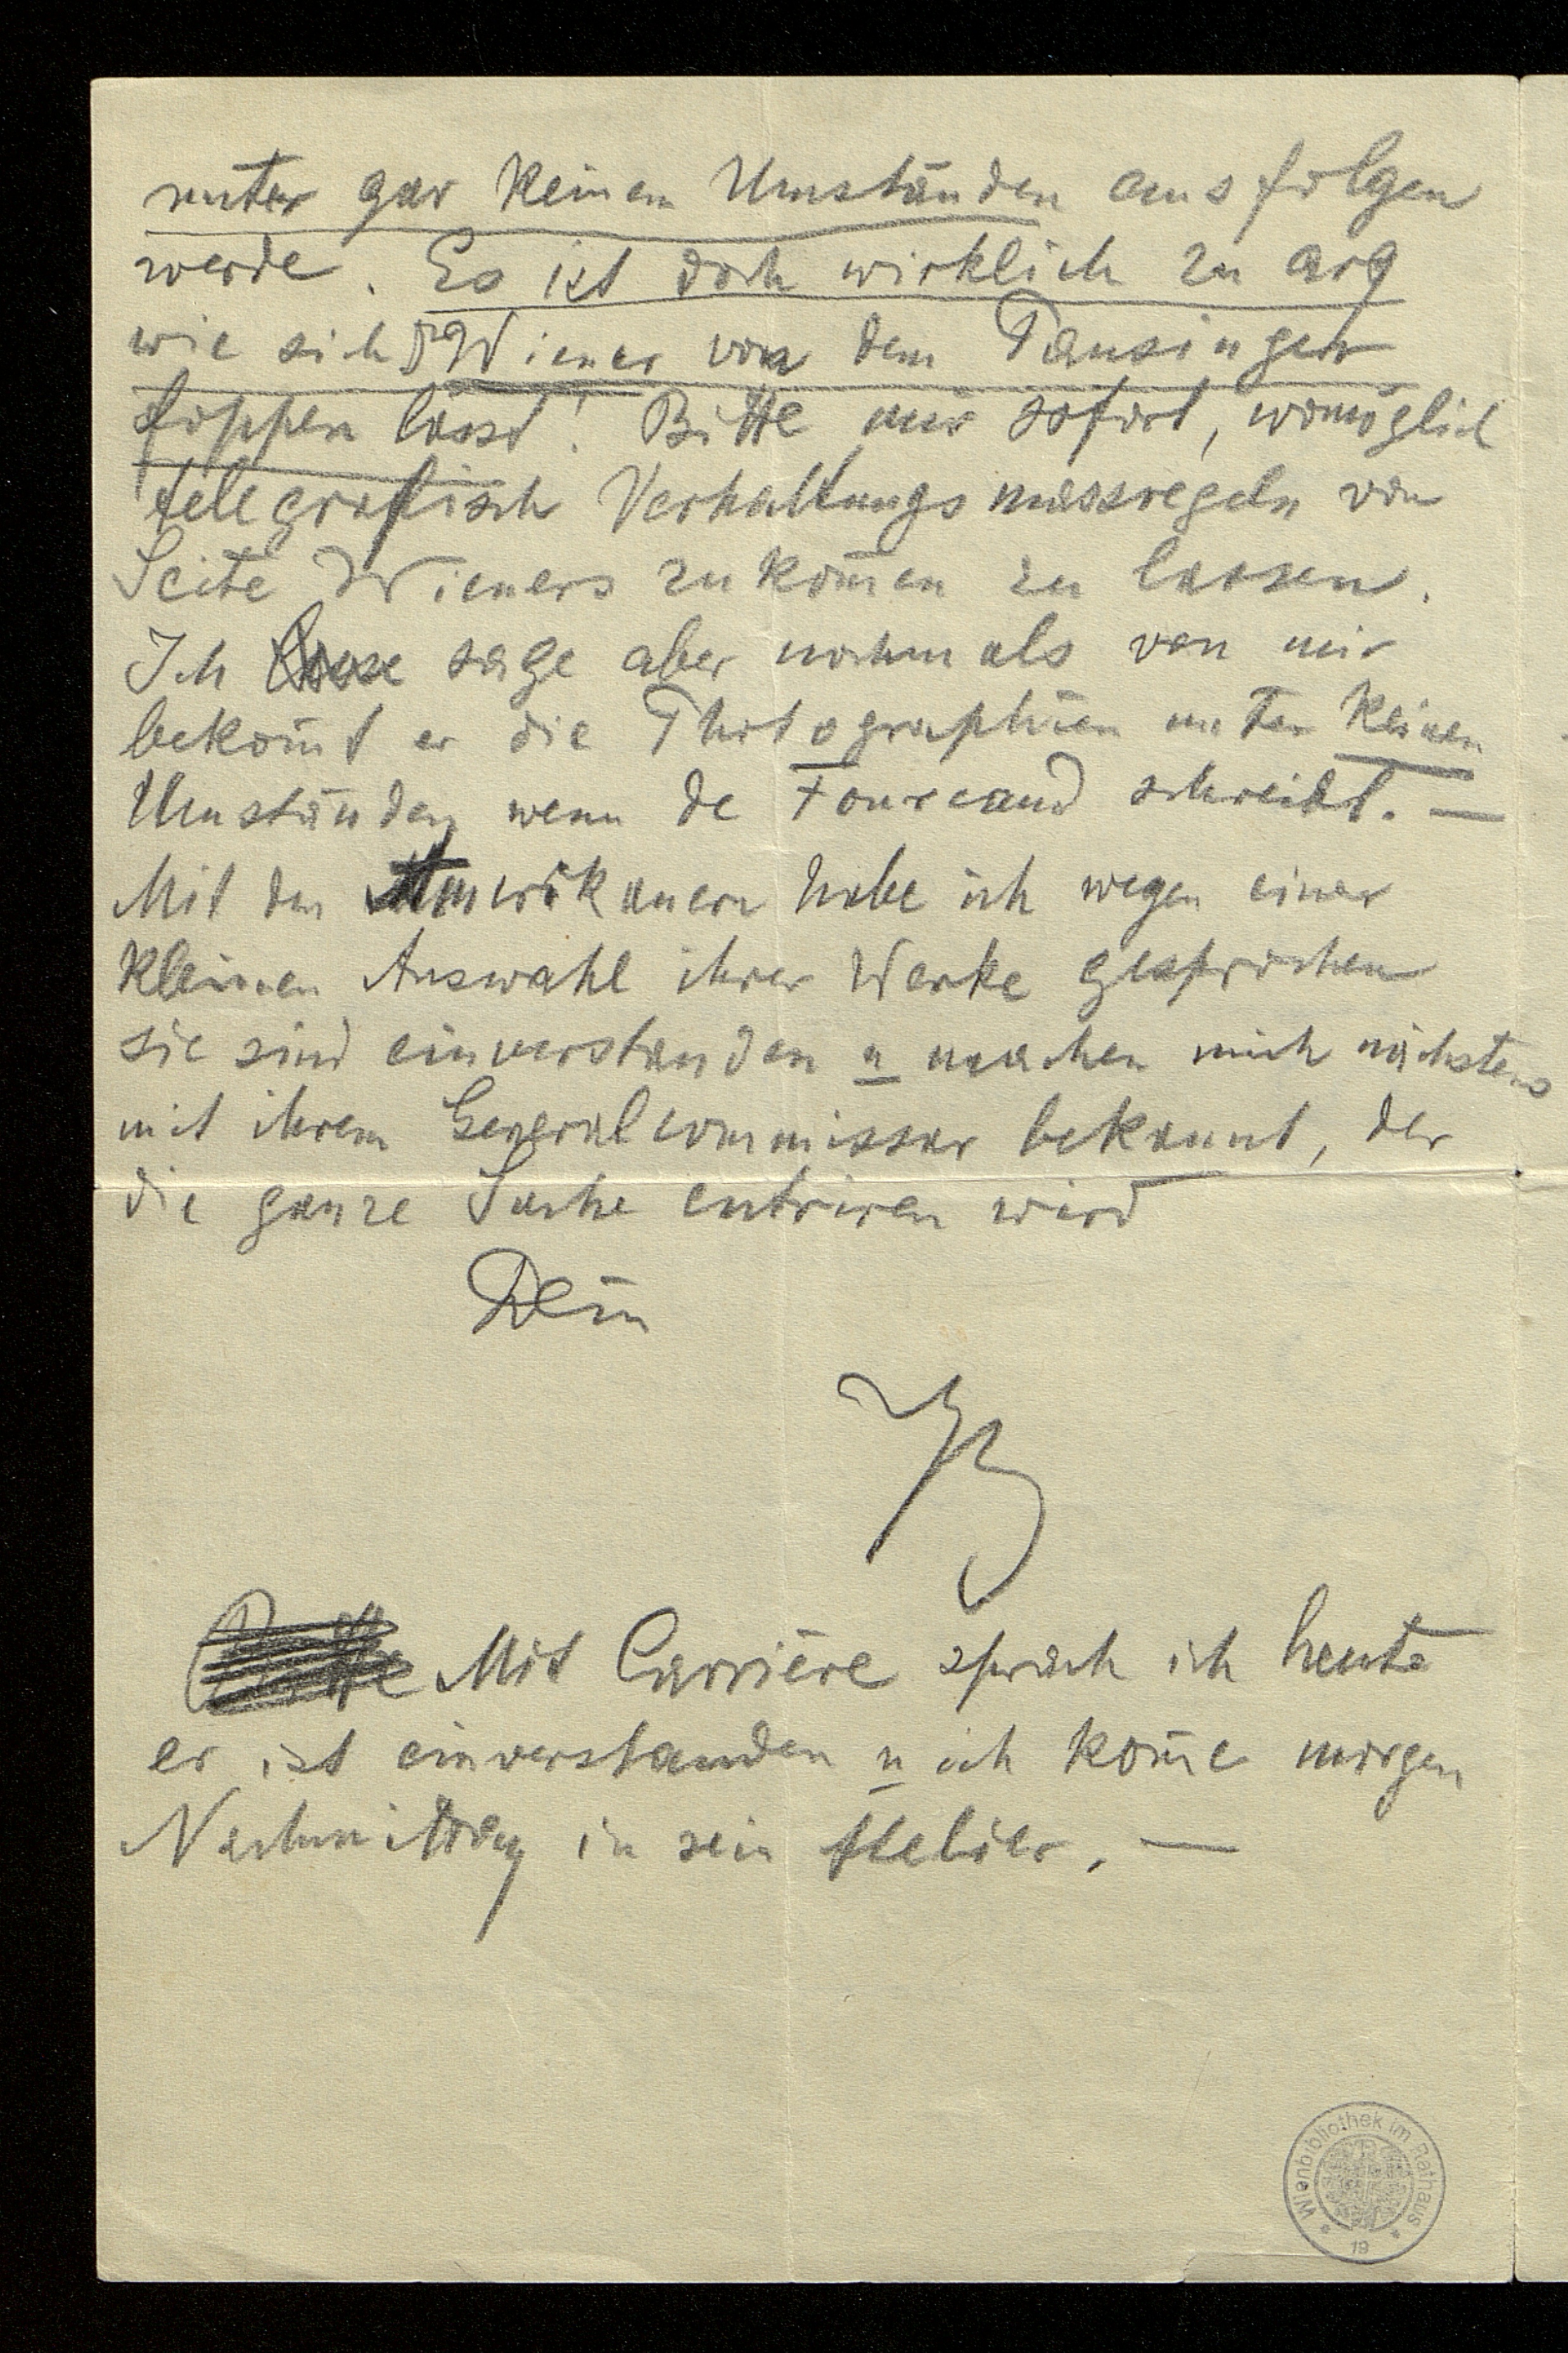 unter gar keinen Umständen ausfolgen
werde. Es ist doch wirklich zu arg
wie sich Wiener von dem Tansinger
foppen lässt! Bitte mir sofort, womöglich
telegrafisch Verhaltungsmassregeln von
Seite Wieners zukom̄en zu lassen.
Ich lasse sage aber nochmals von mir
bekom̄t er die Photographien unter keinen
Umständen wenn de Fourcaud schreibt. —
Mit den Amerikanern habe ich wegen einer
kleinen Auswahl ihrer Werke gesprochen
sie sind einverstanden u machen mich nächstens
mit ihrem Generalcommissar bekannt, der
die ganze Sache entriren wird
Dein
Mit Carrière sprach ich heute
er ist einverstanden u ich kom̄e morgen
Nachmittag in sein Atelier. —
Wienbibliothek im Rathaus
19